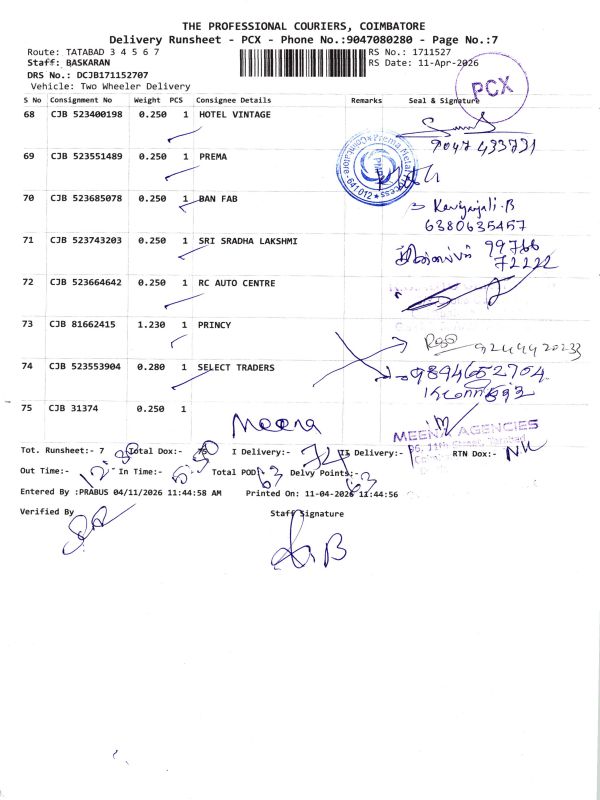 THE PROFESSIONAL COURIERS, COIMBATORE
Delivery Runsheet - PCX - Phone No.:9047080280 - Page No.:7
Route: TATABAD 3 4 5 6 7
RS No.: 1711527
Staff: BASKARAN
RS Date: 11-Apr-2026
DRS No.: DCJB171152707
Vehicle: Two Wheeler Delivery
PCX
S No Consignment No Weight PCS Consignee Details Remarks Seal & Signature
68 CJB 523400198 0.250 1 HOTEL VINTAGE
9047 433731
69 CJB 523551489 0.250 1 PREMA
70 CJB 523685078 0.250 1 BAN FAB
6380635457
71 CJB 523743203 0.250 1 SRI SRADHA LAKSHMI
99766
72222
72 CJB 523664642 0.250 1 RC AUTO CENTRE
73 CJB 81662415 1.230 1 PRINCY
74 CJB 523553904 0.280 1 SELECT TRADERS
75 CJB 31374 0.250 1
Meena
MEENA AGENCIES
Tot. Runsheet:- 7 Total Dox:- 75 I Delivery:- 74 II Delivery:- RTN Dox:- Nil
Out Time:- In Time:- Total POD:- 63 Delvy Points:- 63
Entered By :PRABUS 04/11/2026 11:44:58 AM Printed On: 11-04-2026 11:44:56
Verified By Staff Signature